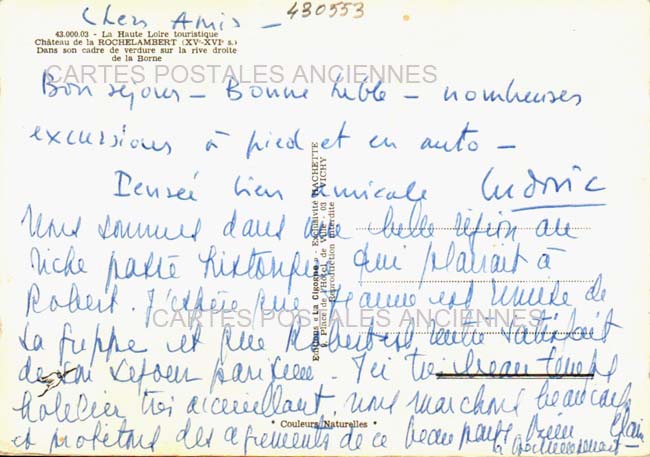 Chers Amis -
430553
43.000.03 - La Haute Loire touristique
Château de la ROCHELAMBERT (XVe-XVIe s.)
Dans son cadre de verdure sur la rive droite
de la Borne
CARTES POSTALES ANCIENNES
Bon séjour - Bonne table - nombreuses
excursions à pied et en auto -
Pensée bien amicale Ludovic
Nous sommes dans une belle région au
riche passé historique qui plairait à
Robert. J'espère que est remise de
la grippe et que Robert est satisfait
de son séjour parisien. Ici très beau temps
hôtelier très accueillant, nous marchons beaucoup
et profitons des agréments de ce beau pays. Bien
CARTES POSTALES ANCIENNES
Editions « La Cigogne » - Exclusivité HACHETTE
9, Place de l'Hôtel de Ville - 03 - VICHY
Reproduction interdite
* Couleurs Naturelles *